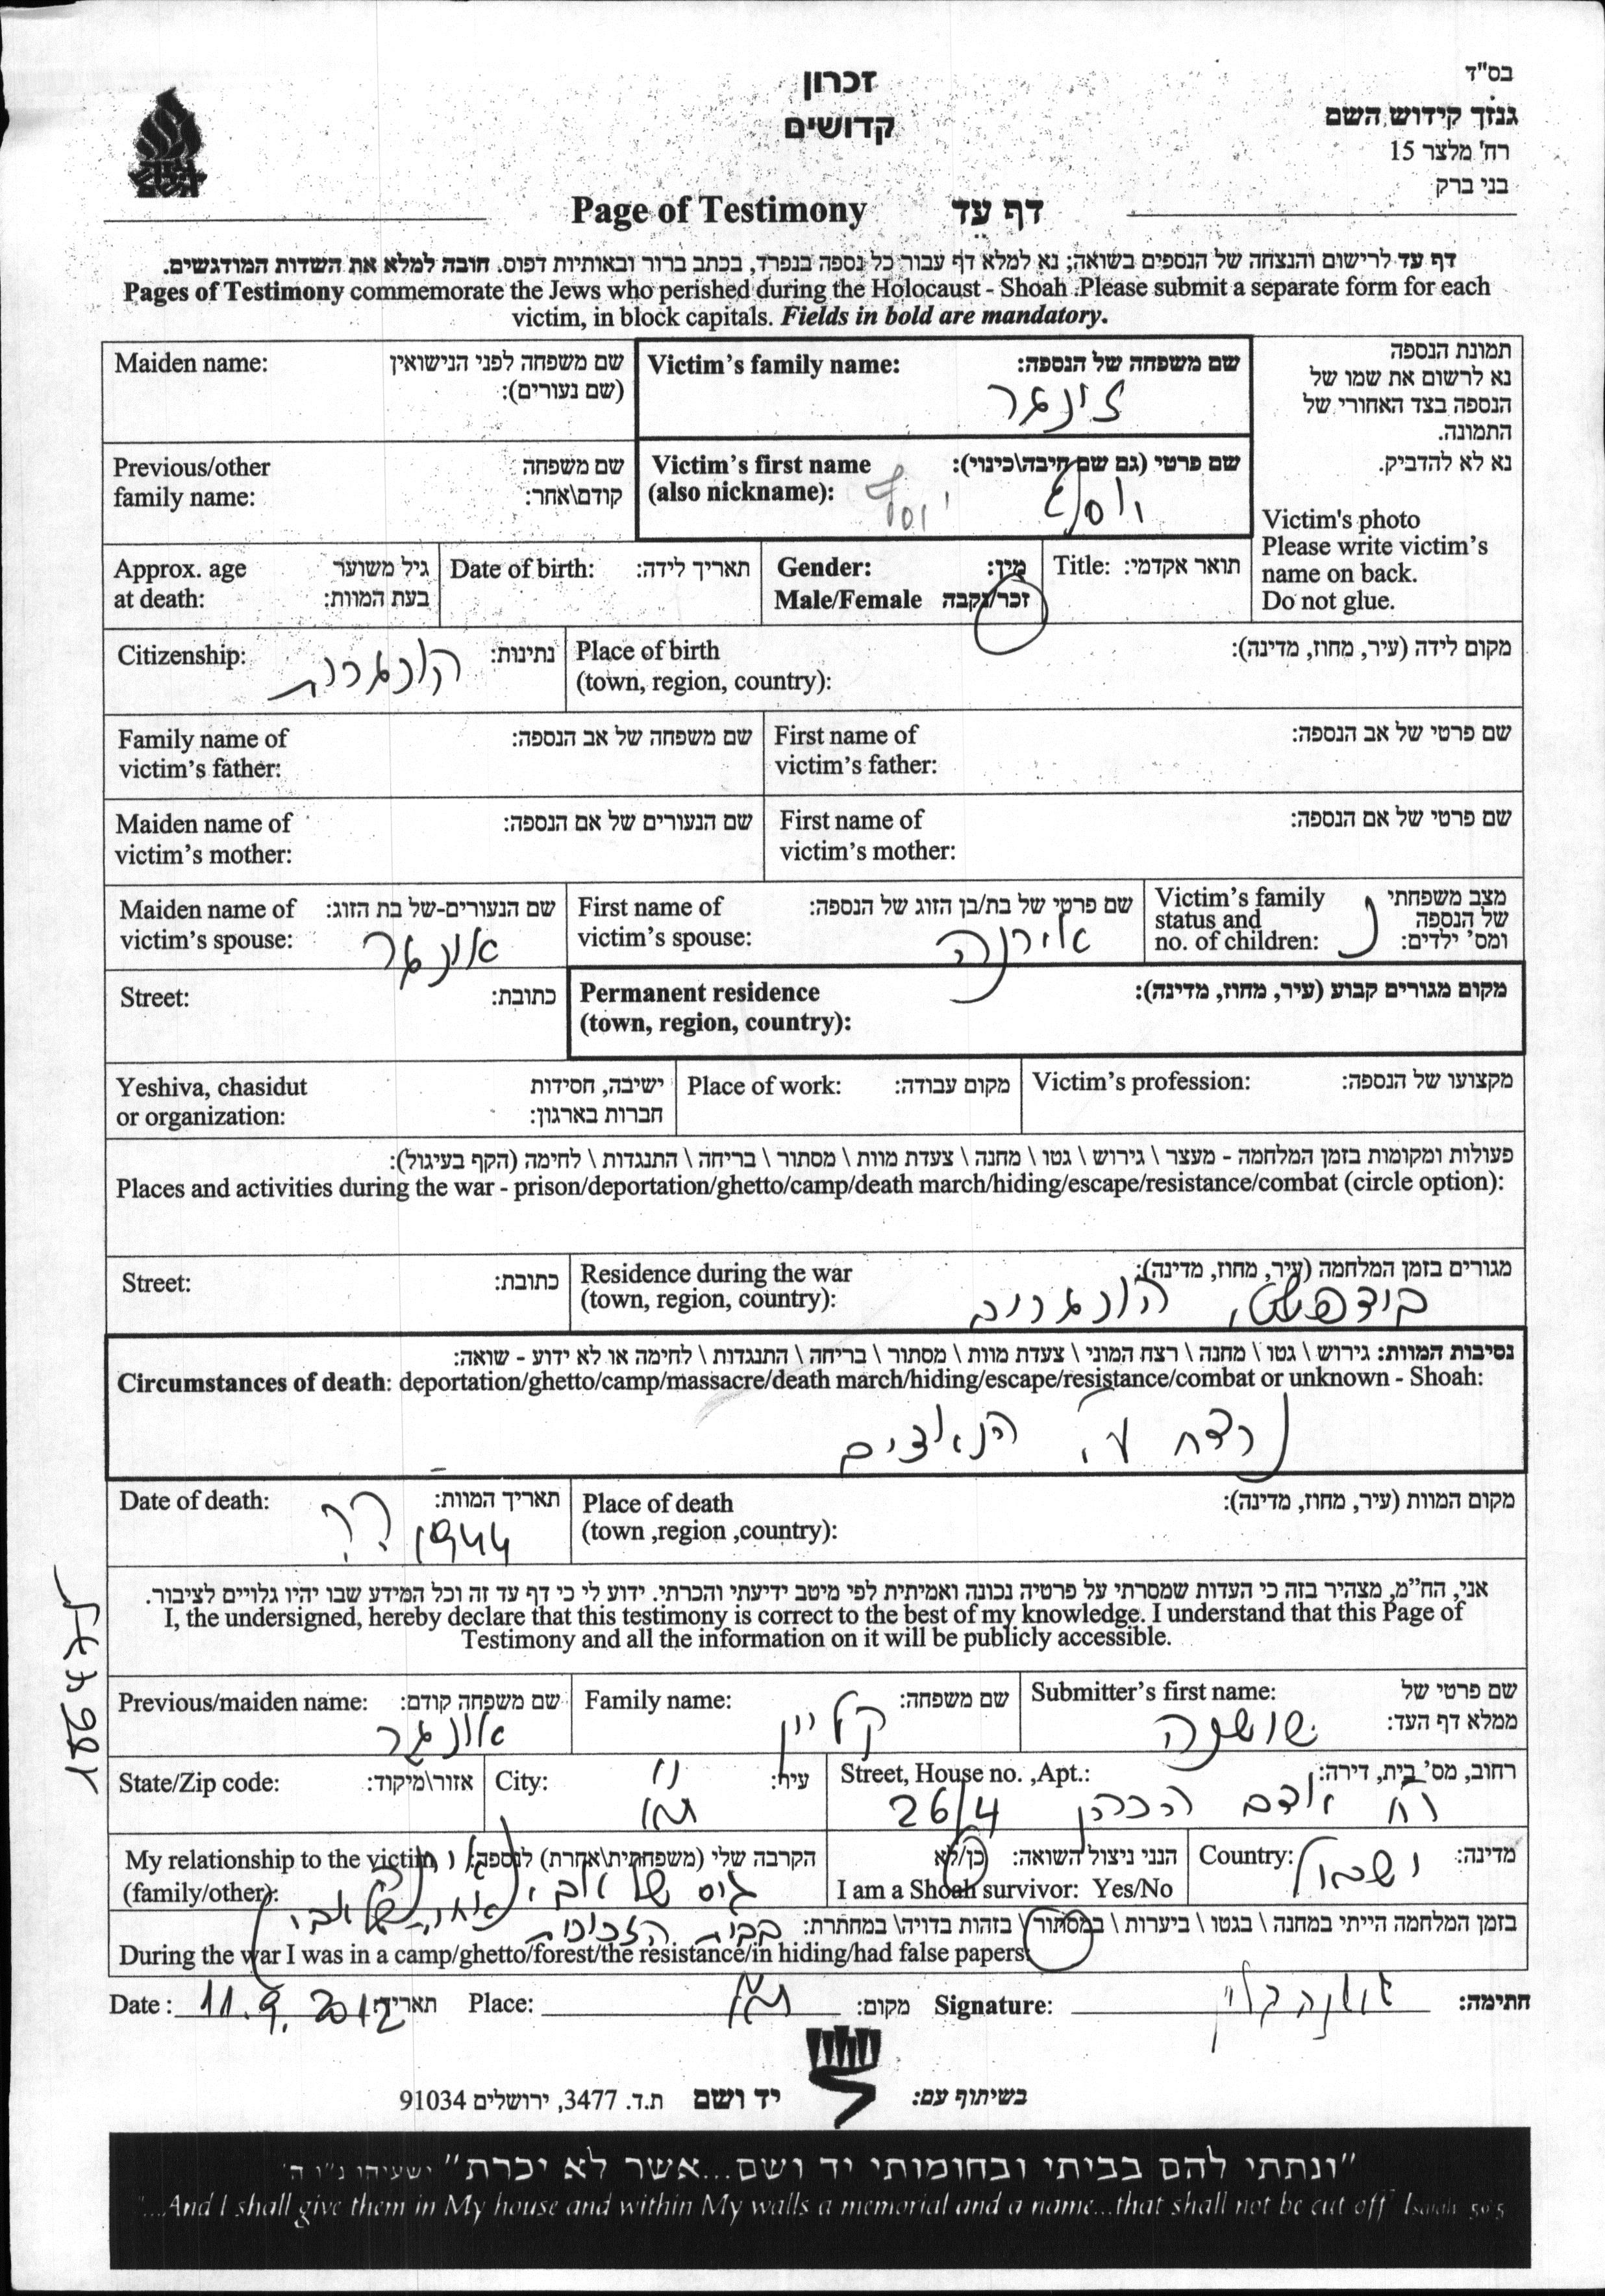 בס"ד
גנזך קידוש השם
רח' מלצר 15
בני ברק
זכרון
קדושים
Page of Testimony דף עד
דף עד לרישום והנצחה של הנספים בשואה; נא למלא דף עבור כל נספה בנפרד, בכתב ברור ובאותיות דפוס. חובה למלא את השדות המודגשים.
Pages of Testimony commemorate the Jews who perished during the Holocaust - Shoah .Please submit a separate form for each
victim, in block capitals. Fields in bold are mandatory.
תמונת הנספה
נא לרשום את שמו של
הנספה בצד האחורי של
התמונה.
נא לא להדביק.
Victim's photo
Please write victim's
name on back.
Do not glue.
Victim's family name: שם משפחה של הנספה:
זינגר
Maiden name: שם משפחה לפני הנישואין
(שם נעורים):
Victim's first name שם פרטי (גם שם חיבה\כינוי):
(also nickname):
יוסף
Previous/other שם משפחה
family name: קודם\אחר:
Title: תואר אקדמי:
Gender: מין:
Male/Female זכר/נקבה
Date of birth: תאריך לידה:
Approx. age גיל משוער
at death: בעת המוות:
Place of birth מקום לידה (עיר, מחוז, מדינה):
(town, region, country):
Citizenship: נתינות:
הונגרית
First name of שם פרטי של אב הנספה:
victim's father:
Family name of שם משפחה של אב הנספה:
victim's father:
First name of שם פרטי של אם הנספה:
victim's mother:
Maiden name of שם הנעורים של אם הנספה:
victim's mother:
Victim's family מצב משפחתי
status and של הנספה
no. of children: ומס' ילדים:
נ
First name of שם פרטי של בת/בן הזוג של הנספה:
victim's spouse: אירנה
Maiden name of שם הנעורים-של בת הזוג:
victim's spouse: אונגר
Permanent residence מקום מגורים קבוע (עיר, מחוז, מדינה):
(town, region, country):
Street: כתובת:
Victim's profession: מקצועו של הנספה:
Place of work: מקום עבודה:
Yeshiva, chasidut ישיבה, חסידות
or organization: חברות בארגון:
פעולות ומקומות בזמן המלחמה - מעצר \ גירוש \ גטו \ מחנה \ צעדת מוות \ מסתור \ בריחה \ התנגדות \ לחימה (הקף בעיגול):
Places and activities during the war - prison/deportation/ghetto/camp/death march/hiding/escape/resistance/combat (circle option):
Residence during the war מגורים בזמן המלחמה (עיר, מחוז, מדינה):
(town, region, country): בודפשט, הונגריה
Street: כתובת:
נסיבות המוות: גירוש \ גטו \ מחנה \ רצח המוני \ צעדת מוות \ מסתור \ בריחה \ התנגדות \ לחימה או לא ידוע - שואה:
Circumstances of death: deportation/ghetto/camp/massacre/death march/hiding/escape/resistance/combat or unknown - Shoah:
נרצח ע"י הנאצים
Place of death מקום המוות (עיר, מחוז, מדינה):
(town ,region ,country):
Date of death: תאריך המוות:
1944
אני, הח"מ, מצהיר בזה כי העדות שמסרתי על פרטיה נכונה ואמיתית לפי מיטב ידיעתי והכרתי. ידוע לי כי דף עד זה וכל המידע שבו יהיו גלויים לציבור.
I, the undersigned, hereby declare that this testimony is correct to the best of my knowledge. I understand that this Page of
Testimony and all the information on it will be publicly accessible.
Submitter's first name: שם פרטי של
ממלא דף העד:
שושנה
Family name: שם משפחה:
קליין
Previous/maiden name: שם משפחה קודם:
אונגר
Street, House no. ,Apt.: רחוב, מס' בית, דירה:
רח אדם הכהן 26/4
City: עיר:
ת"א
State/Zip code: אזור\מיקוד:
Country: מדינה:
ישראל
הנני ניצול השואה: כן/לא
I am a Shoah survivor: Yes/No
My relationship to the victim הקרבה שלי (משפחתית\אחרת) לנספה:
(family/other): גיס של אבי
בזמן המלחמה הייתי במחנה \ בגטו \ ביערות \ במסתור \ בזהות בדויה\ במחתרת: בבית הזכוכית
During the war I was in a camp/ghetto/forest/the resistance/in hiding/had false papers:
Date : 11.9.2012 תאריך Place: ת"א מקום: Signature: שושנה קליין חתימה:
בשיתוף עם: יד ושם ת.ד. 3477, ירושלים 91034
"ונתתי להם בביתי ובחומותי יד ושם...אשר לא יכרת" ישעיהו נ"ו ה'
"...And I shall give them in My house and within My walls a memorial and a name...that shall not be cut off" Isaiah 56:5